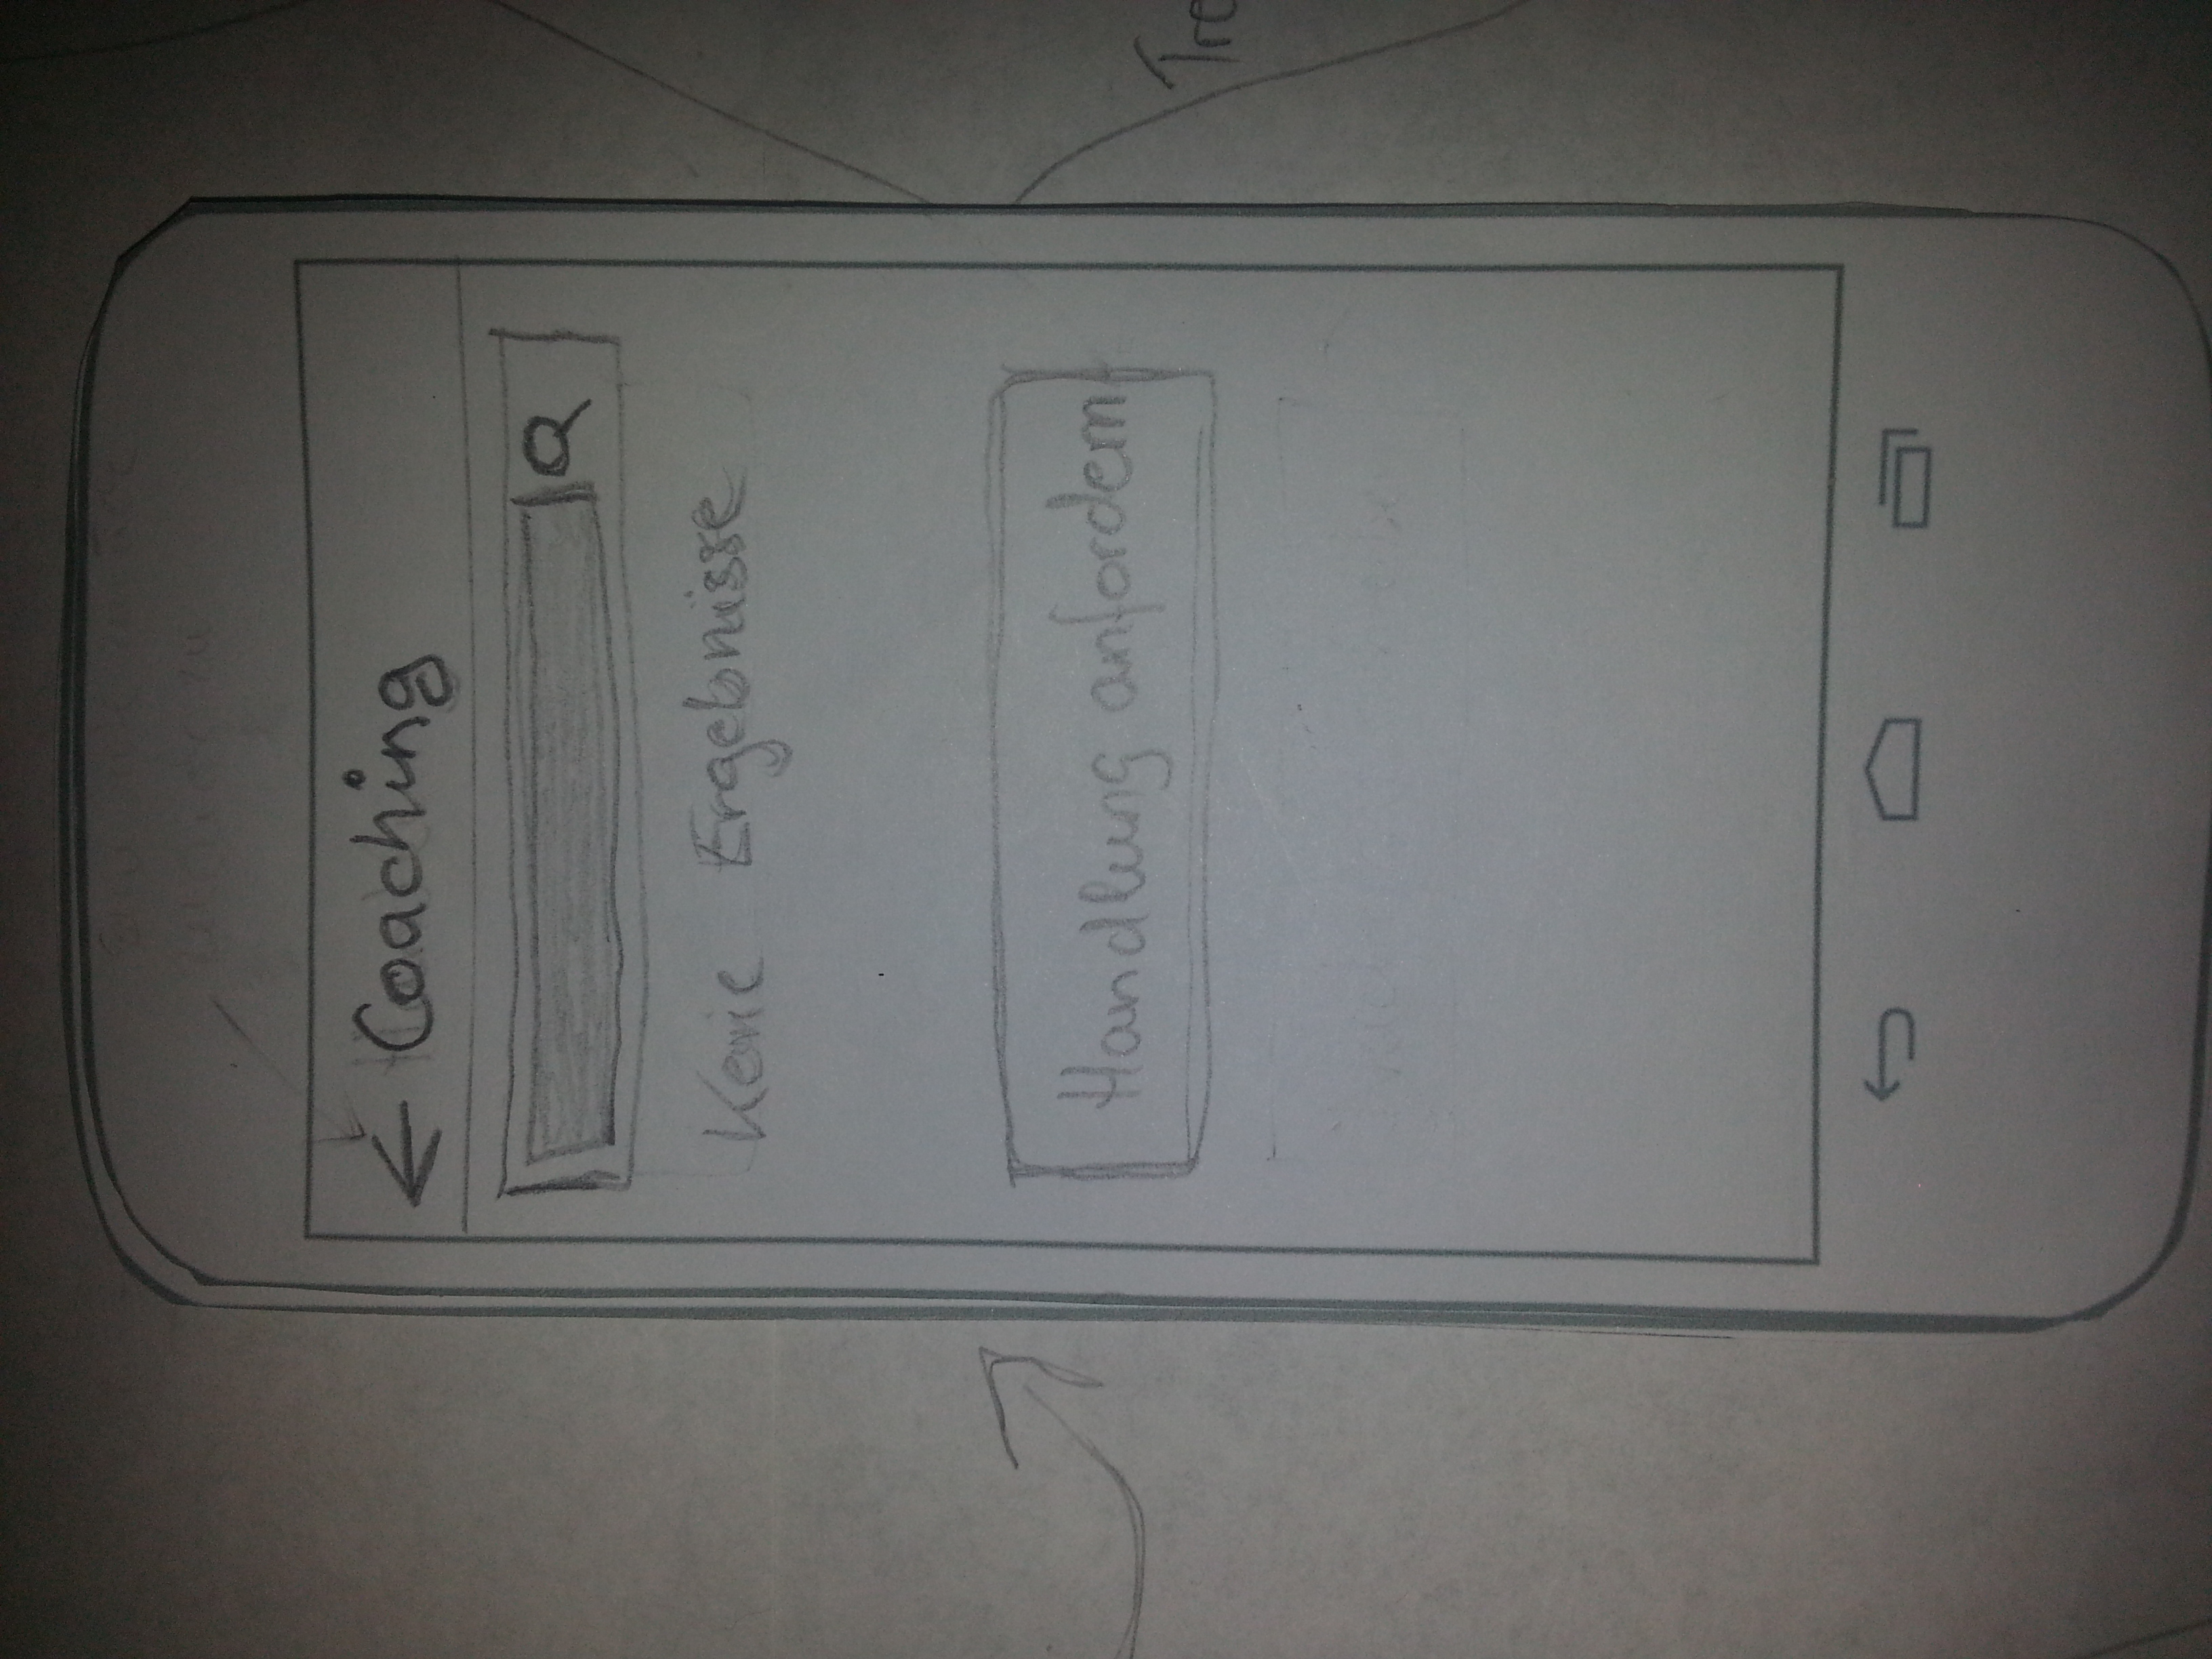 ← Coaching
Keine Ergebnisse
Handlung anfordern
Tre